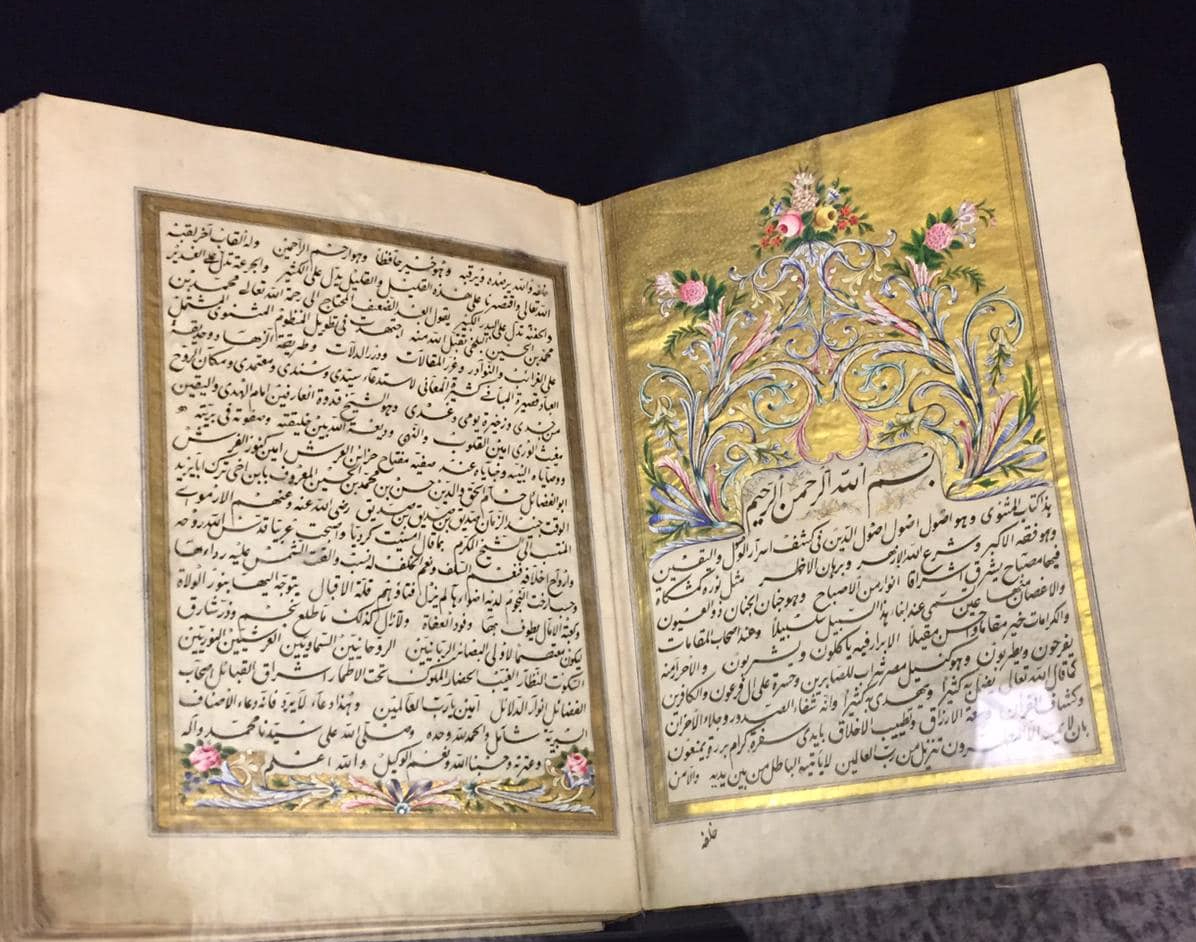 بسم الله الرحمن الرحيم
هذا كتاب المثنوى وهو اصول اصول اصول الدين فى كشف اسرار الوصول واليقين
وهو فقه الاكبر وشرع الله الازهر وبرهان الله الاظهر مثل نوره كمشكاة
فيها مصباح يشرق اشراقا انور من الاصباح وهو جنان الجنان ذو العيون
والاغصان منها عين تسمى عند ابناء هذا السبيل سلسبيلا وعند اصحاب المقامات
والكرامات خير مقاما واحسن مقيلا الابرار فيه ياكلون ويشربون والاحرار منه
يفرحون ويطربون وهو كنيل مصر شراب للصابرين وحسرة على ال فرعون والكافرين
كما قال الله تعالى يضل به كثيرا ويهدى به كثيرا وانه شفاء الصدور وجلاء الاحزان
وكشاف القرآن وسعة الارزاق وتطييب الاخلاق بايدى سفرة كرام بررة يمنعون
بان لا يمسه الا المطهرون تنزيل من رب العالمين لا ياتيه الباطل من بين يديه ولا من
خلفه
خلفه والله يرصده ويرقبه وهو خير حافظا وهو ارحم الراحمين وله القاب اخر لقبه
الله تعالى واقتصرنا على هذه القليل والقليل يدل على الكثير والجرعة تدل على الغدير
والحفنة تدل على البيدر الكبير يقول العبد الضعيف المحتاج الى رحمة الله تعالى محمد بن
محمد بن الحسين البلخى تقبل الله منه اجتهدت فى تطويل المنظوم المثنوى المشتمل
على الغرائب والنوادر وغرر المقالات ودرر الدلالات وطريقة الزهاد وحديقة
العباد قصيرة المبانى كثيرة المعانى لاستدعاء سيدى وسندى ومعتمدى ومكان الروح
من جسدى وذخيرة يومى وغدى وهو الشيخ قدوة العارفين امام الهدى واليقين
مغيث الورى امين القلوب والنهى وديعة الله بين خليقته وصفوته فى بريته
ووصاياه لنبيه وخباياه عند صفيه مفتاح خزائن العرش امين كنوز الفرش
ابو الفضائل حسام الحق والدين حسن بن محمد بن حسن المعروف بابن اخى ترك ابا يزيد
الوقت جنيد الزمان صديق بن صديق بن صديق رضى الله عنه وعنهم الارموى
المنتسب الى الشيخ المكرم بما قال امسيت كرديا واصبحت عربيا قدس الله روحه
وارواح اخلافه فنعم السلف ونعم الخلف له نسب القت الشمس عليه رداءها
وحسب ارخت النجوم لديه اضواءها لم يزل فناؤهم قبلة الاقبال يتوجه اليها بنو الولاة
وكعبة الآمال يطوف بها وفود العفاة ولا زال كذلك ما طلع نجم وذر شارق
ليكون معتصما لاولى البصائر الربانيين الروحانيين السماويين العرشيين النوريين
السكوت النظار الغيب الحضار الملوك تحت الاطمار اشراف القبائل اصحاب
الفضائل انوار الدلائل امين يا رب العالمين وهذا دعاء لا يرد فانه دعاء لاصناف
البرية شامل والحمد لله وحده وصلى الله على سيدنا محمد وآله
وعترته وحسبنا الله ونعم الوكيل والله اعلم